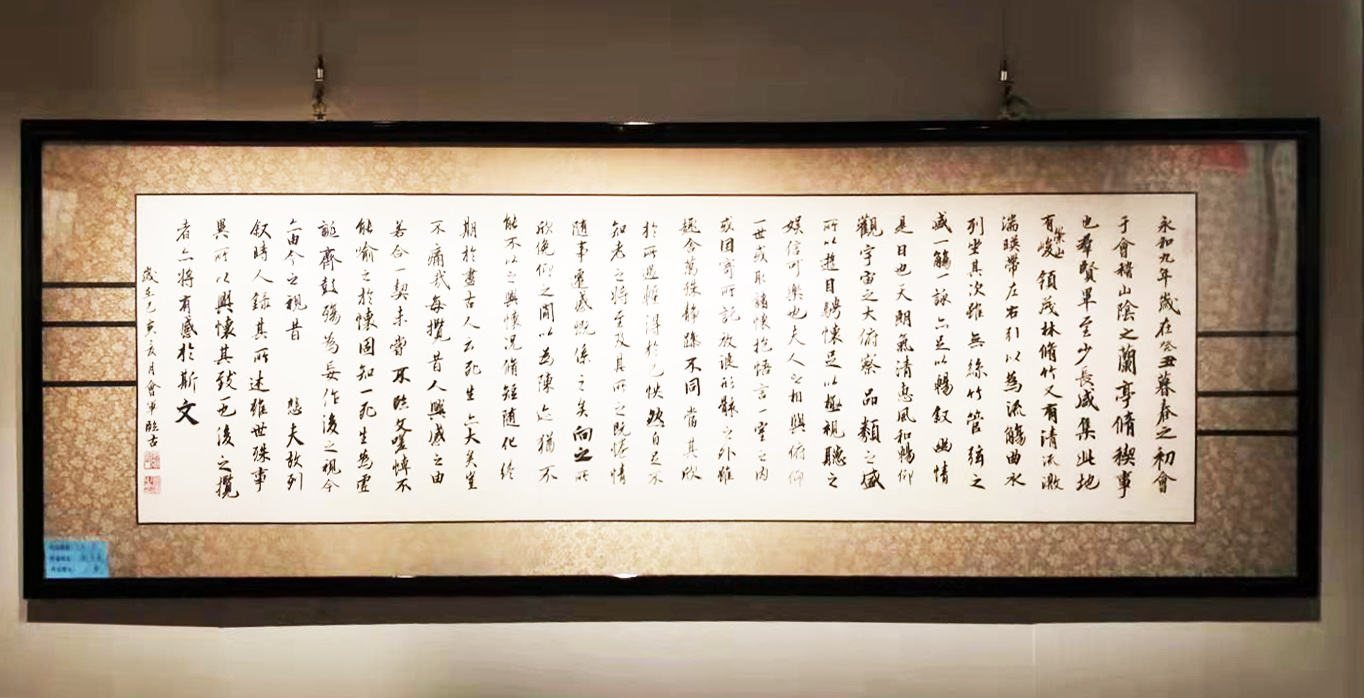 永和九年歲在癸丑暮春之初會
于會稽山陰之蘭亭脩稧事
也羣賢畢至少長咸集此地
有崇山峻領茂林脩竹又有清流激
湍暎帶左右引以為流觴曲水
列坐其次雖無絲竹管弦之
盛一觴一詠亦足以暢敘幽情
是日也天朗氣清惠風和暢仰
觀宇宙之大俯察品類之盛
所以遊目騁懷足以極視聽之
娛信可樂也夫人之相與俯仰
一世或取諸懷抱悟言一室之內
或因寄所託放浪形骸之外雖
趣舍萬殊靜躁不同當其欣
於所遇暫得於己怏然自足不
知老之將至及其所之既惓情
隨事遷感慨係之矣向之所
欣俛仰之間以為陳迹猶不
能不以之興懷況脩短隨化終
期於盡古人云死生亦大矣豈
不痛哉每攬昔人興感之由
若合一契未嘗不臨文嗟悼不
能喻之於懷固知一死生為虛
誕齊彭殤為妄作後之視今
亦由今之視昔 悲夫故列
敘時人錄其所述雖世殊事
異所以興懷其致一也後之攬
者亦將有感於斯文
歲在己亥